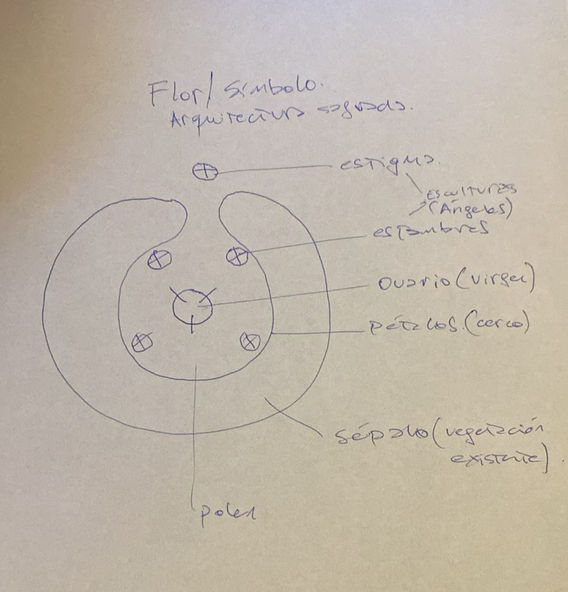 Flor/ Símbolo.
Arquitectura sagrada.
estigma.
Esculturas
(Ángeles)
estambres
ovario (virgen)
pétalos. (cerco)
sépalo (vegetación
existente).
polen